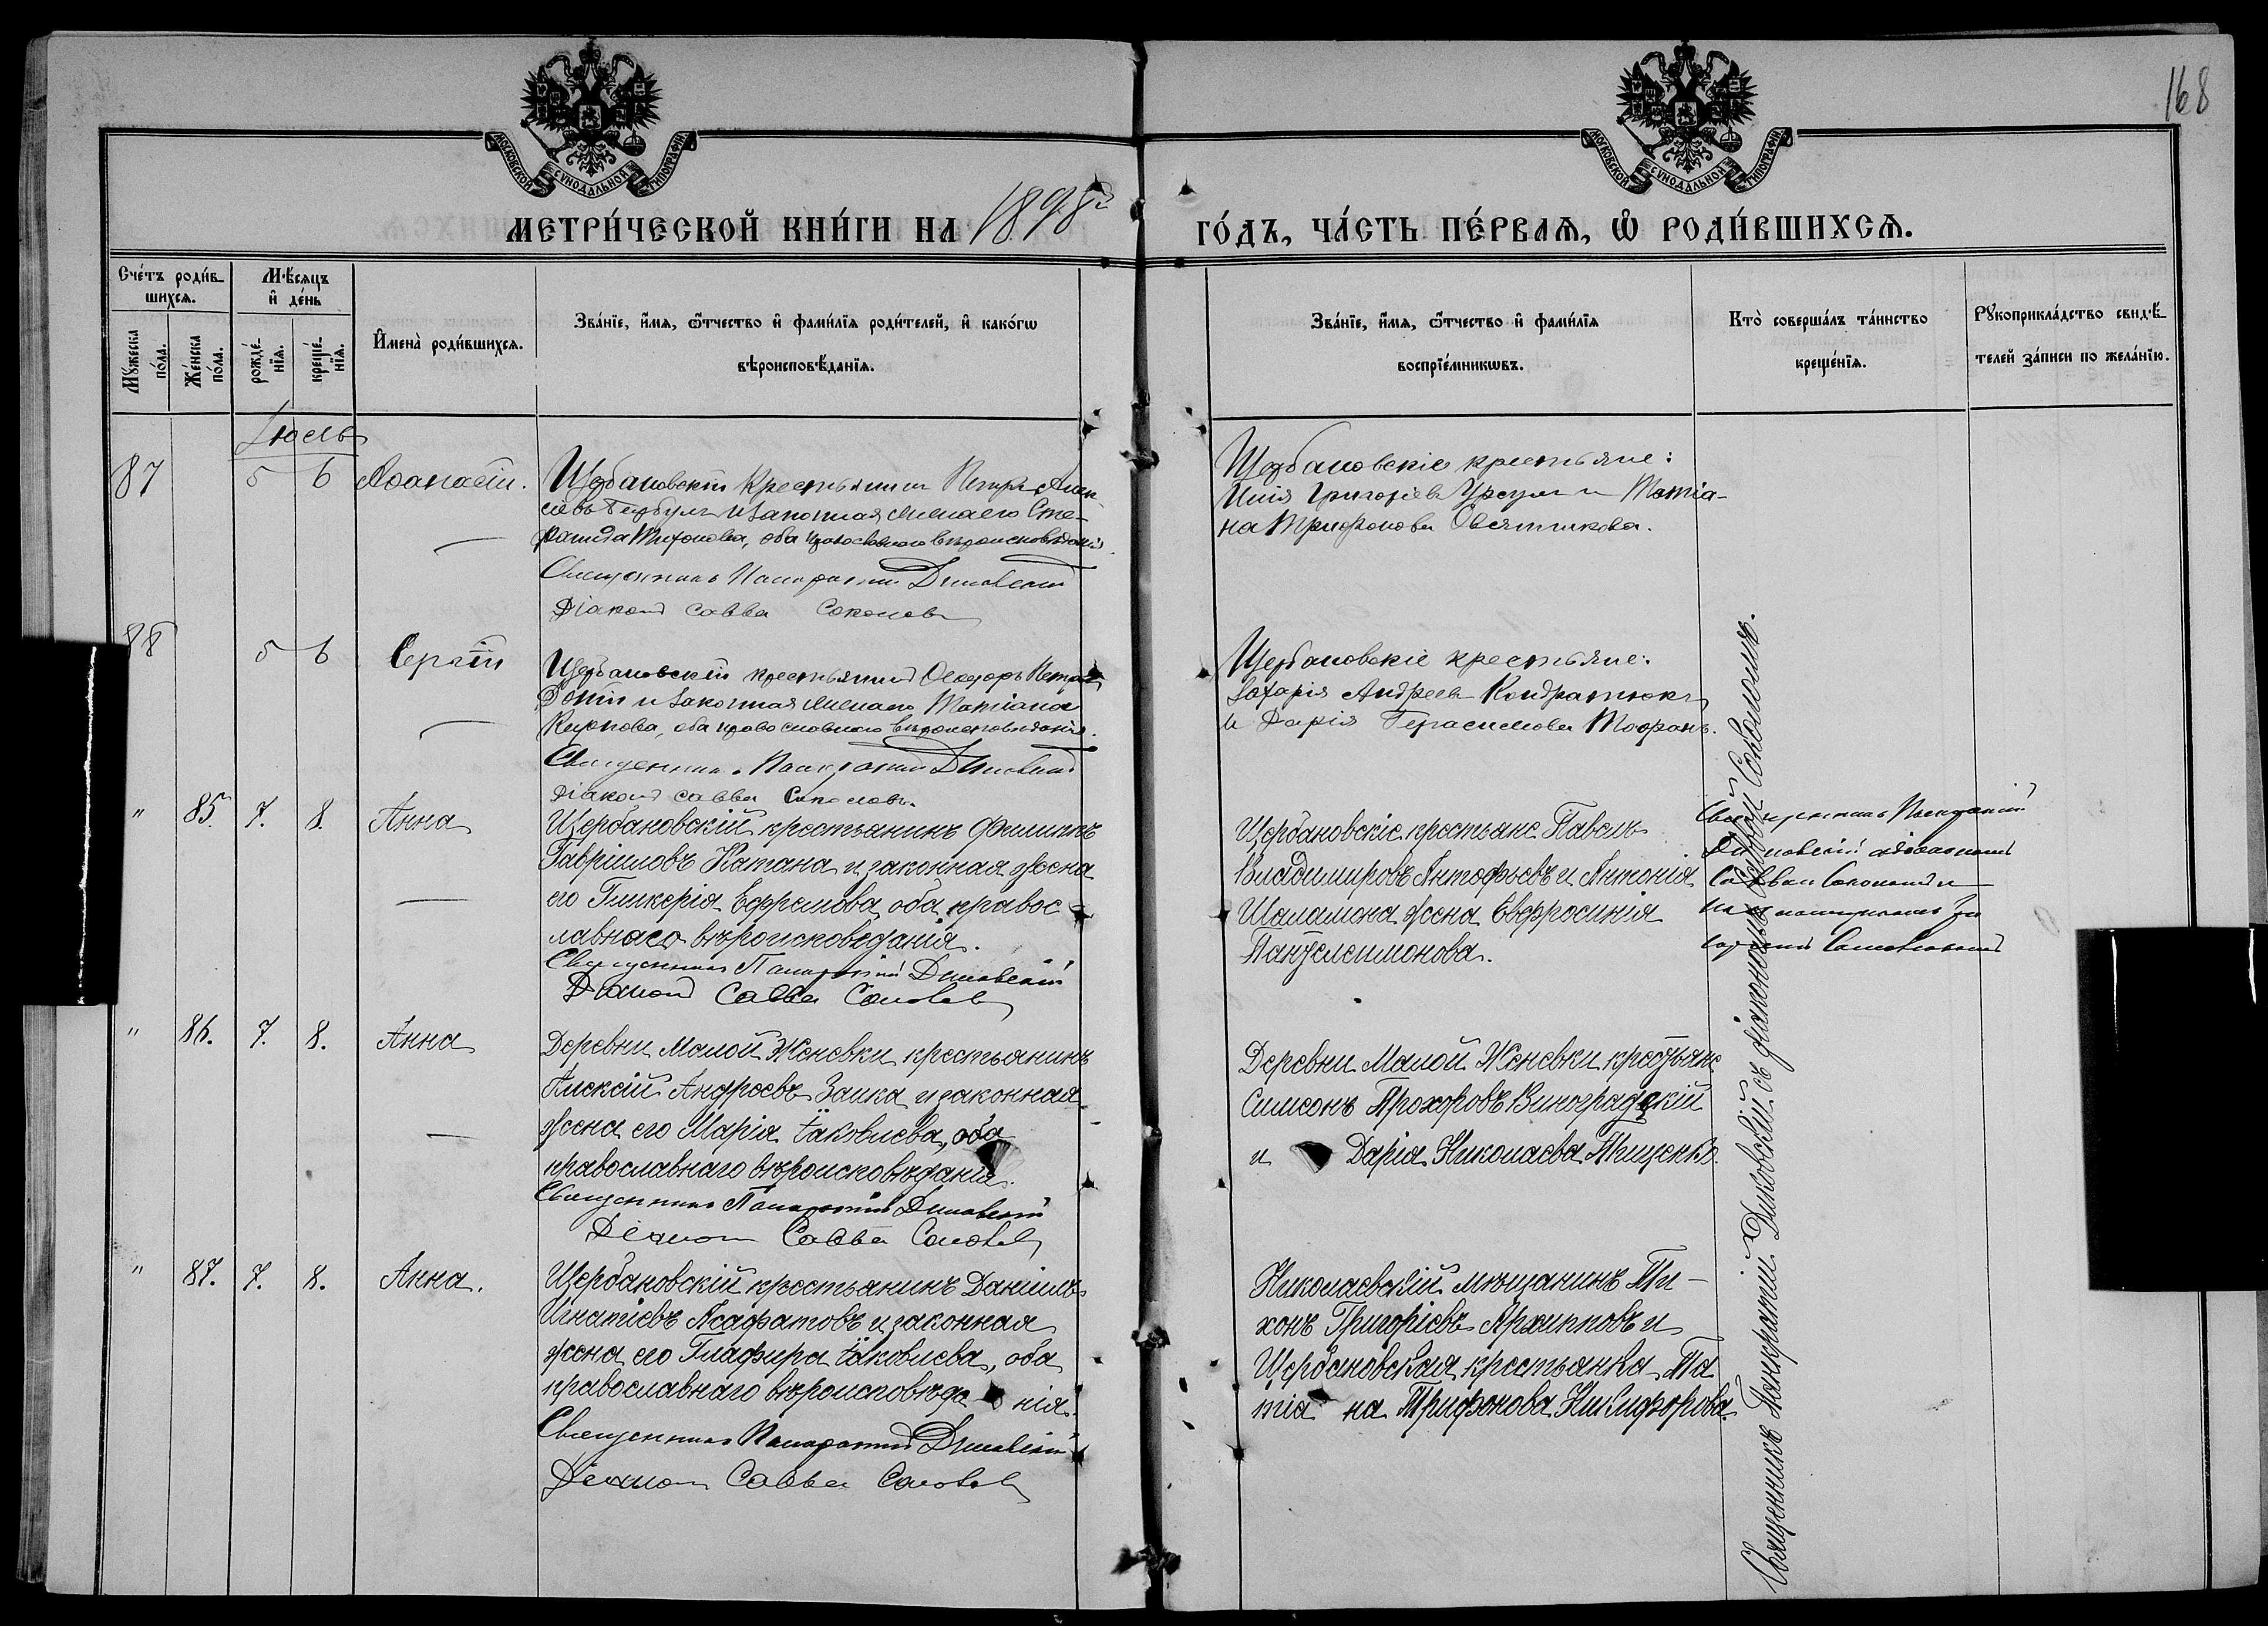 168
МОСКОВСКОЙ СѴНОДАЛЬНОЙ ТИПОГРАФІИ
МОСКОВСКОЙ СѴНОДАЛЬНОЙ ТИПОГРАФІИ
МЕТРИ́ЧЕСКОЙ КНИ́ГИ НА 1898й ГО́ДЪ, ЧА́СТЬ ПЕ́РВАѦ, Ѡ҆ РОДИ́ВШИХСѦ.
Сче́тъ роди́в-
шихсѧ.
Мꙋ́жеска по́ла.
Же́нска по́ла.
Мѣ́сѧцъ
и҆ де́нь
рожде́-
нїѧ.
креще́-
нїѧ.
И҆мена̀ роди́вшихсѧ.
Зва́нїе, и҆́мѧ, ѻ҆́тчество и҆ фами́лїѧ роди́телей, и҆ како́гѡ
вѣроисповѣ́данїѧ.
Зва́нїе, и҆́мѧ, ѻ҆́тчество и҆ фами́лїѧ
воспрїе́мникѡвъ.
Кто̀ соверша́лъ та́инство
креще́нїѧ.
Рꙋкоприкла́дство свидѣ́-
телей за́писи по жела́нїю.
Іюль
87 5 6 Аѳанасій.
Щербановскій крестьянинъ Петръ
и законная жена его Сте-
фанида Тихонова, оба православнаго вѣроисповѣданія
Священникъ Панкратій Диковскій
Діаконъ Савва Соколовъ
Щербановскіе крестьяне:
Илія Григоріевъ Урсулъ и Татіа-
на Трифонова
88 5 6 Сергій
Щербановскій крестьянинъ Ѳеодоръ
и законная жена его Татіана
Карпова, оба православнаго вѣроисповѣданія.
Священникъ Панкратій Диковскій
Діаконъ Савва Соколовъ.
Щербановскіе крестьяне:
Захарія Андреевъ Кондратюкъ
и Дарія Герасимова Тофанъ.
" 85. 7. 8. Анна
Щербановскій крестьянинъ Филиппъ
Гавріиловъ Катана и законная жена
его Гликерія Ефремова, оба правос-
лавнаго вѣроисповѣданія.
Священникъ Панкратій Диковскій
Діаконъ Савва Соколовъ
Щербановскіе крестьяне Павелъ
Владимировъ Антофьевъ и Антонія
Шаламона жена Евфросинія
Пантелеимонова.
Священникъ Панкратій
Диковскій съ діакономъ
Саввою Соколовымъ и
" 86. 7. 8. Анна
Деревни Малой Женевки крестьянинъ
Алексій Андреевъ Заика и законная
жена его Марія Іаковлева, оба
православнаго вѣроисповѣданія.
Священникъ Панкратій Диковскій
Діаконъ Савва Соколовъ
Деревни Малой Женевки крестьяне
Симеонъ Прохоровъ Виноградскій
и Дарія Николаева Тищенко.
" 87. 7. 8. Анна.
Щербановскій крестьянинъ Даніилъ
Игнатіевъ Асафатовъ и законная
жена его Глафира Іаковлева, оба
православнаго вѣроисповѣданія.
Священникъ Панкратій Диковскій
Діаконъ Савва Соколовъ
Николаевскій мѣщанинъ Ти-
хонъ Григоріевъ Архипповъ и
Щербановская крестьянка Та
тіана Трифонова Никифорова.
Священникъ Панкратій Диковскій съ діакономъ Саввой Соколовымъ.